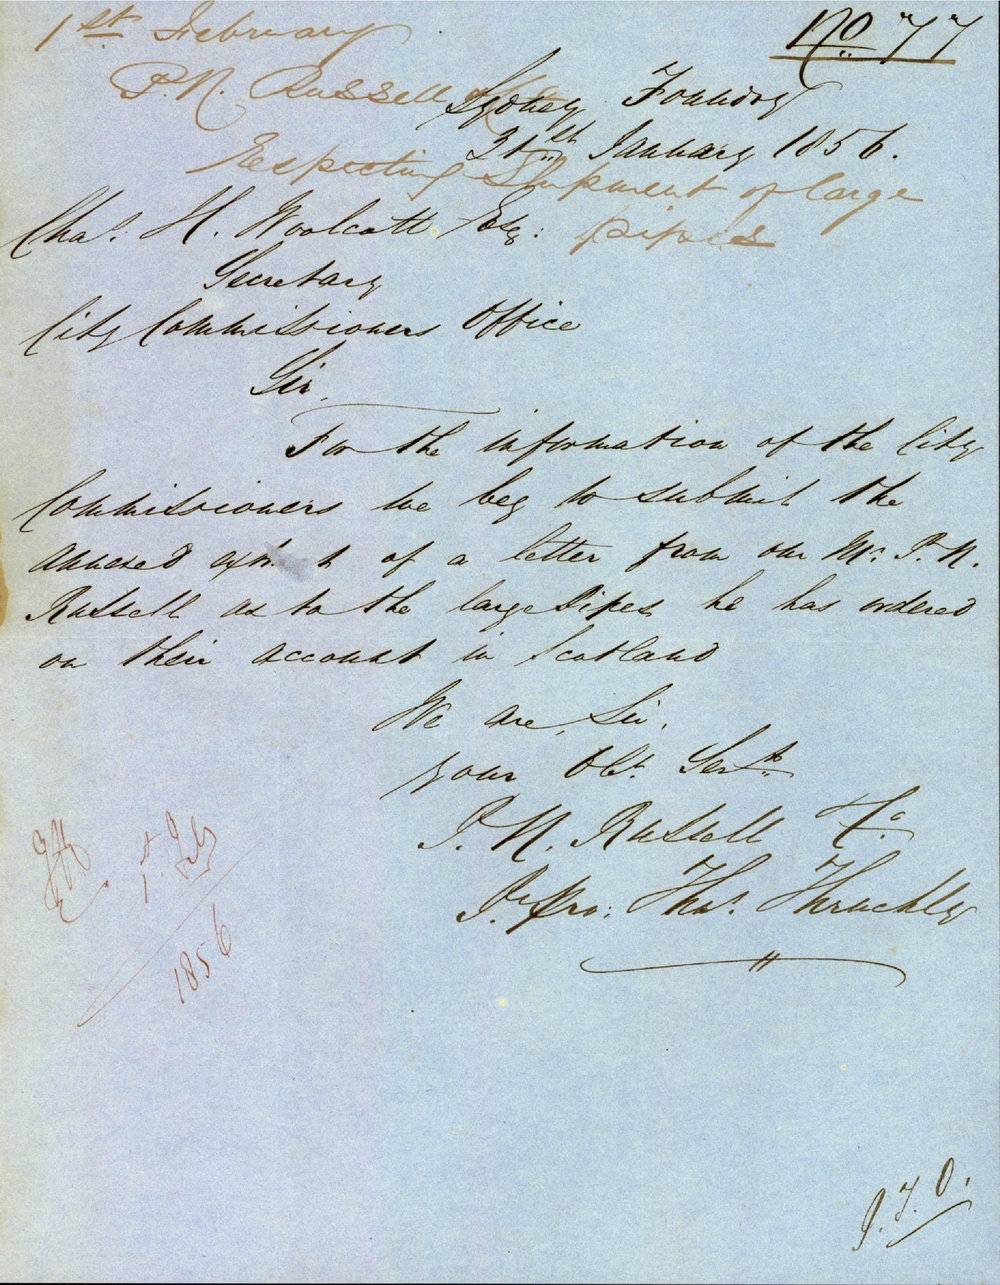 1st February
No. 77
P. N. Russell & Co
Sydney Foundry
31st January 1856.
Respecting Shipment of large
pipes
Chas. H. Woolcott Esq:
Secretary
City Commissioners Office
Sir,
For the information of the City
Commissioners we beg to submit the
annexed of a letter from our Mr. P. N.
Russell as to the large pipes he has ordered
on their account in Scotland
We are, Sir,
your Obt. Servts
P. N. Russell & Co
Pr pro: Thos.
1st Feby
1856
P.T.O.